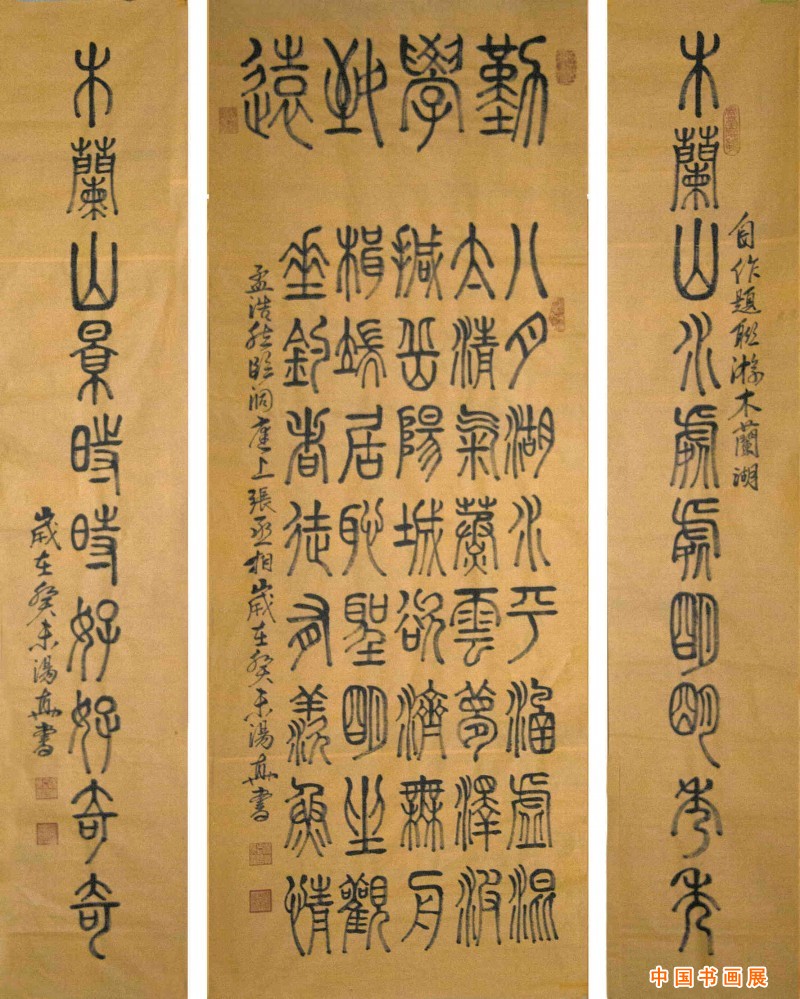 木蘭山水處處明明秀秀
自作題聯游木蘭湖
勤學致遠
八月湖水平涵虛混
太清氣蒸雲夢澤波
撼岳陽城欲濟無舟
楫端居恥聖明坐觀
垂釣者徒有羨魚情
孟浩然臨洞庭上張丞相歲在癸未湯書
木蘭山景時時好好奇奇
歲在癸未湯書
中国书画展